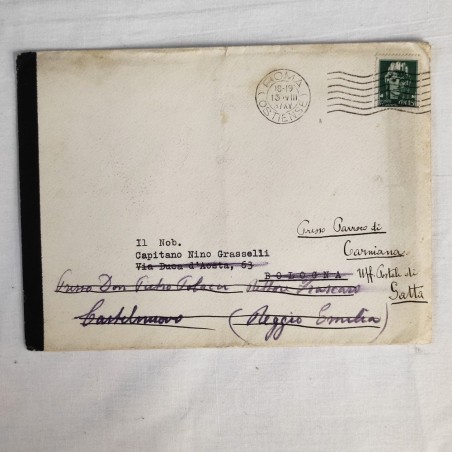 ROMA
OSTIENSE
18-19
13 VIII
XV
Il Nob.
Capitano Nino Grasselli
Via Duca d'Aosta, 63
BOLOGNA
Presso Parroco di
Carniana
Uff. Postale di
Gatta
Presso Don Pietro
Castelnuovo
(Reggio Emilia)